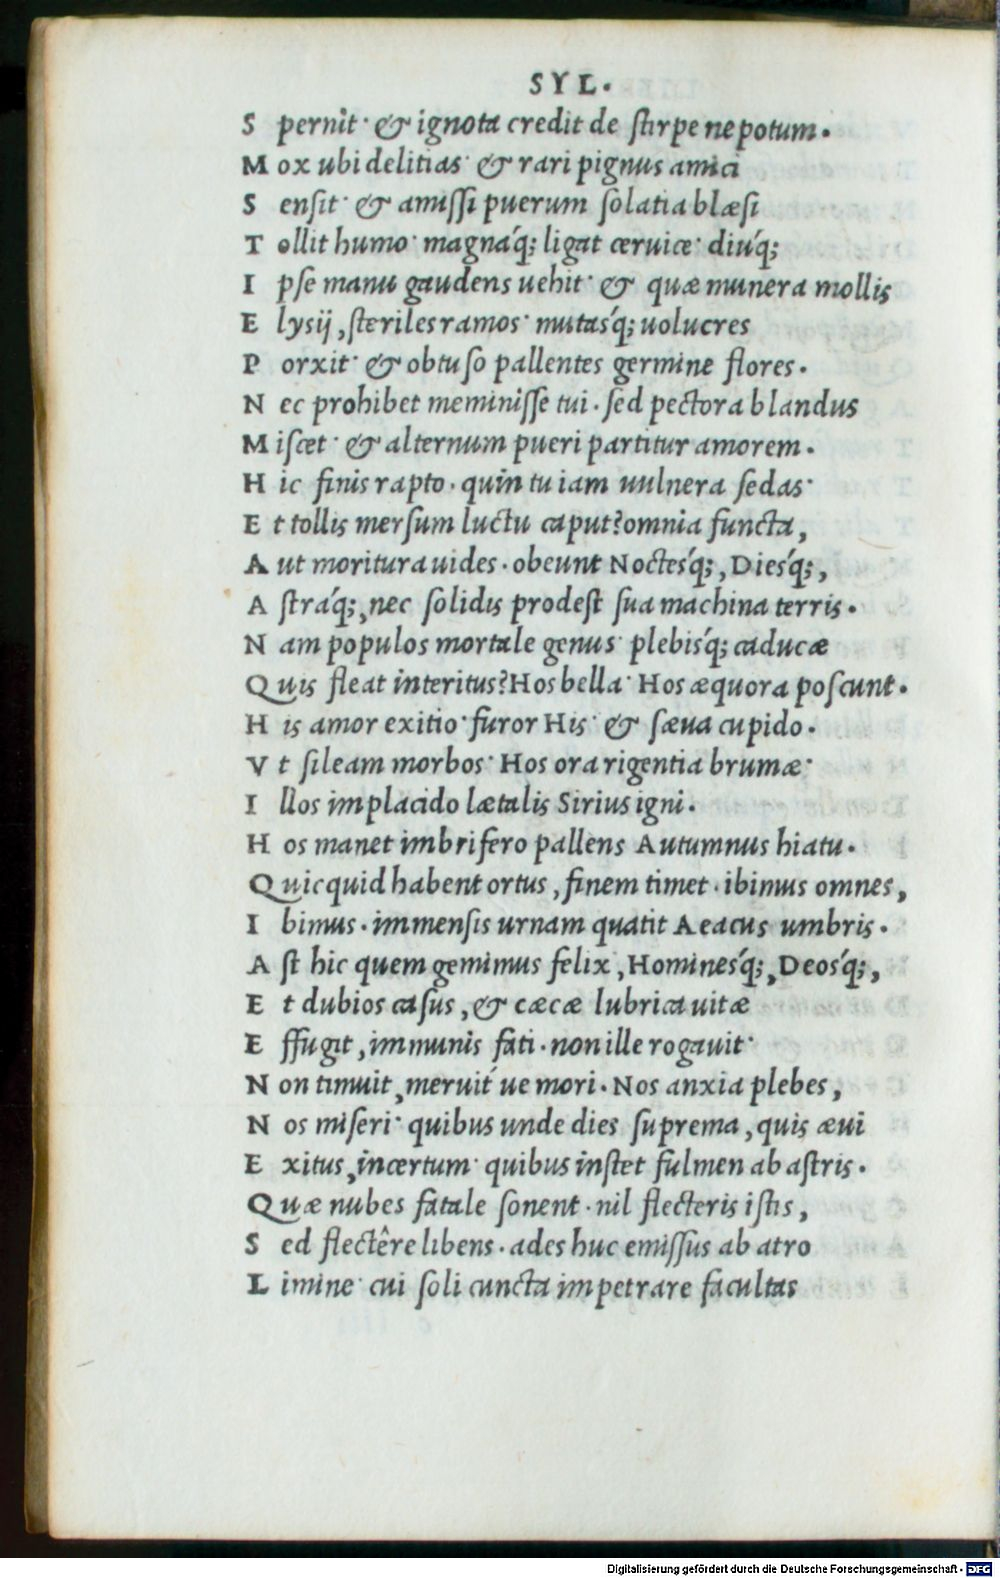 SYL.
S pernit· & ignota credit de stirpe nepotum.
M ox ubi delitias· & rari pignus amici
S ensit· & amissi puerum solatia blæsi
T ollit humo· magnáq; ligat ceruice· diúq;
I pse manu gaudens uehit· & quæ munera mollis
E lysij, steriles ramos· mutasq́; uolucres
P orxit· & obtuso pallentes germine flores.
N ec prohibet meminisse tui. sed pectora blandus
M iscet· & alternum pueri partitur amorem.
H ic finis rapto. quin tu iam uulnera sedas·
E t tollis mersum luctu caput? omnia functa,
A ut moritura uides. obeunt Noctesq́;, Diesq́;,
A stráq;, nec solidis prodest sua machina terris.
N am populos mortale genus· plebisq́; caducæ
Q uis fleat interitus? Hos bella· Hos æquora poscunt.
H is amor exitio· furor His· & sæua cupido.
V t sileam morbos· Hos ora rigentia brumæ·
I llos implacido lætalis Sirius igni.
H os manet imbrifero pallens Autumnus hiatu.
Q uicquid habent ortus, finem timet. ibimus omnes,
I bimus. immensis urnam quatit Aeacus umbris.
A st hic quem gemimus felix, Hominesq́;, Deosq́;,
E t dubios casus, & cæcæ lubrica uitæ
E ffugit, immunis fati. non ille rogauit·
N on timuit, meruit́ ue mori. Nos anxia plebes,
N os miseri· quibus unde dies suprema, quis æui
E xitus, incertum· quibus instet fulmen ab astris.
Q uæ nubes fatale sonent. nil flecteris istis,
S ed flectêre libens. ades huc emissus ab atro
L imine· cui soli cuncta impetrare facultas
Digitalisierung gefördert durch die Deutsche Forschungsgemeinschaft - DFG